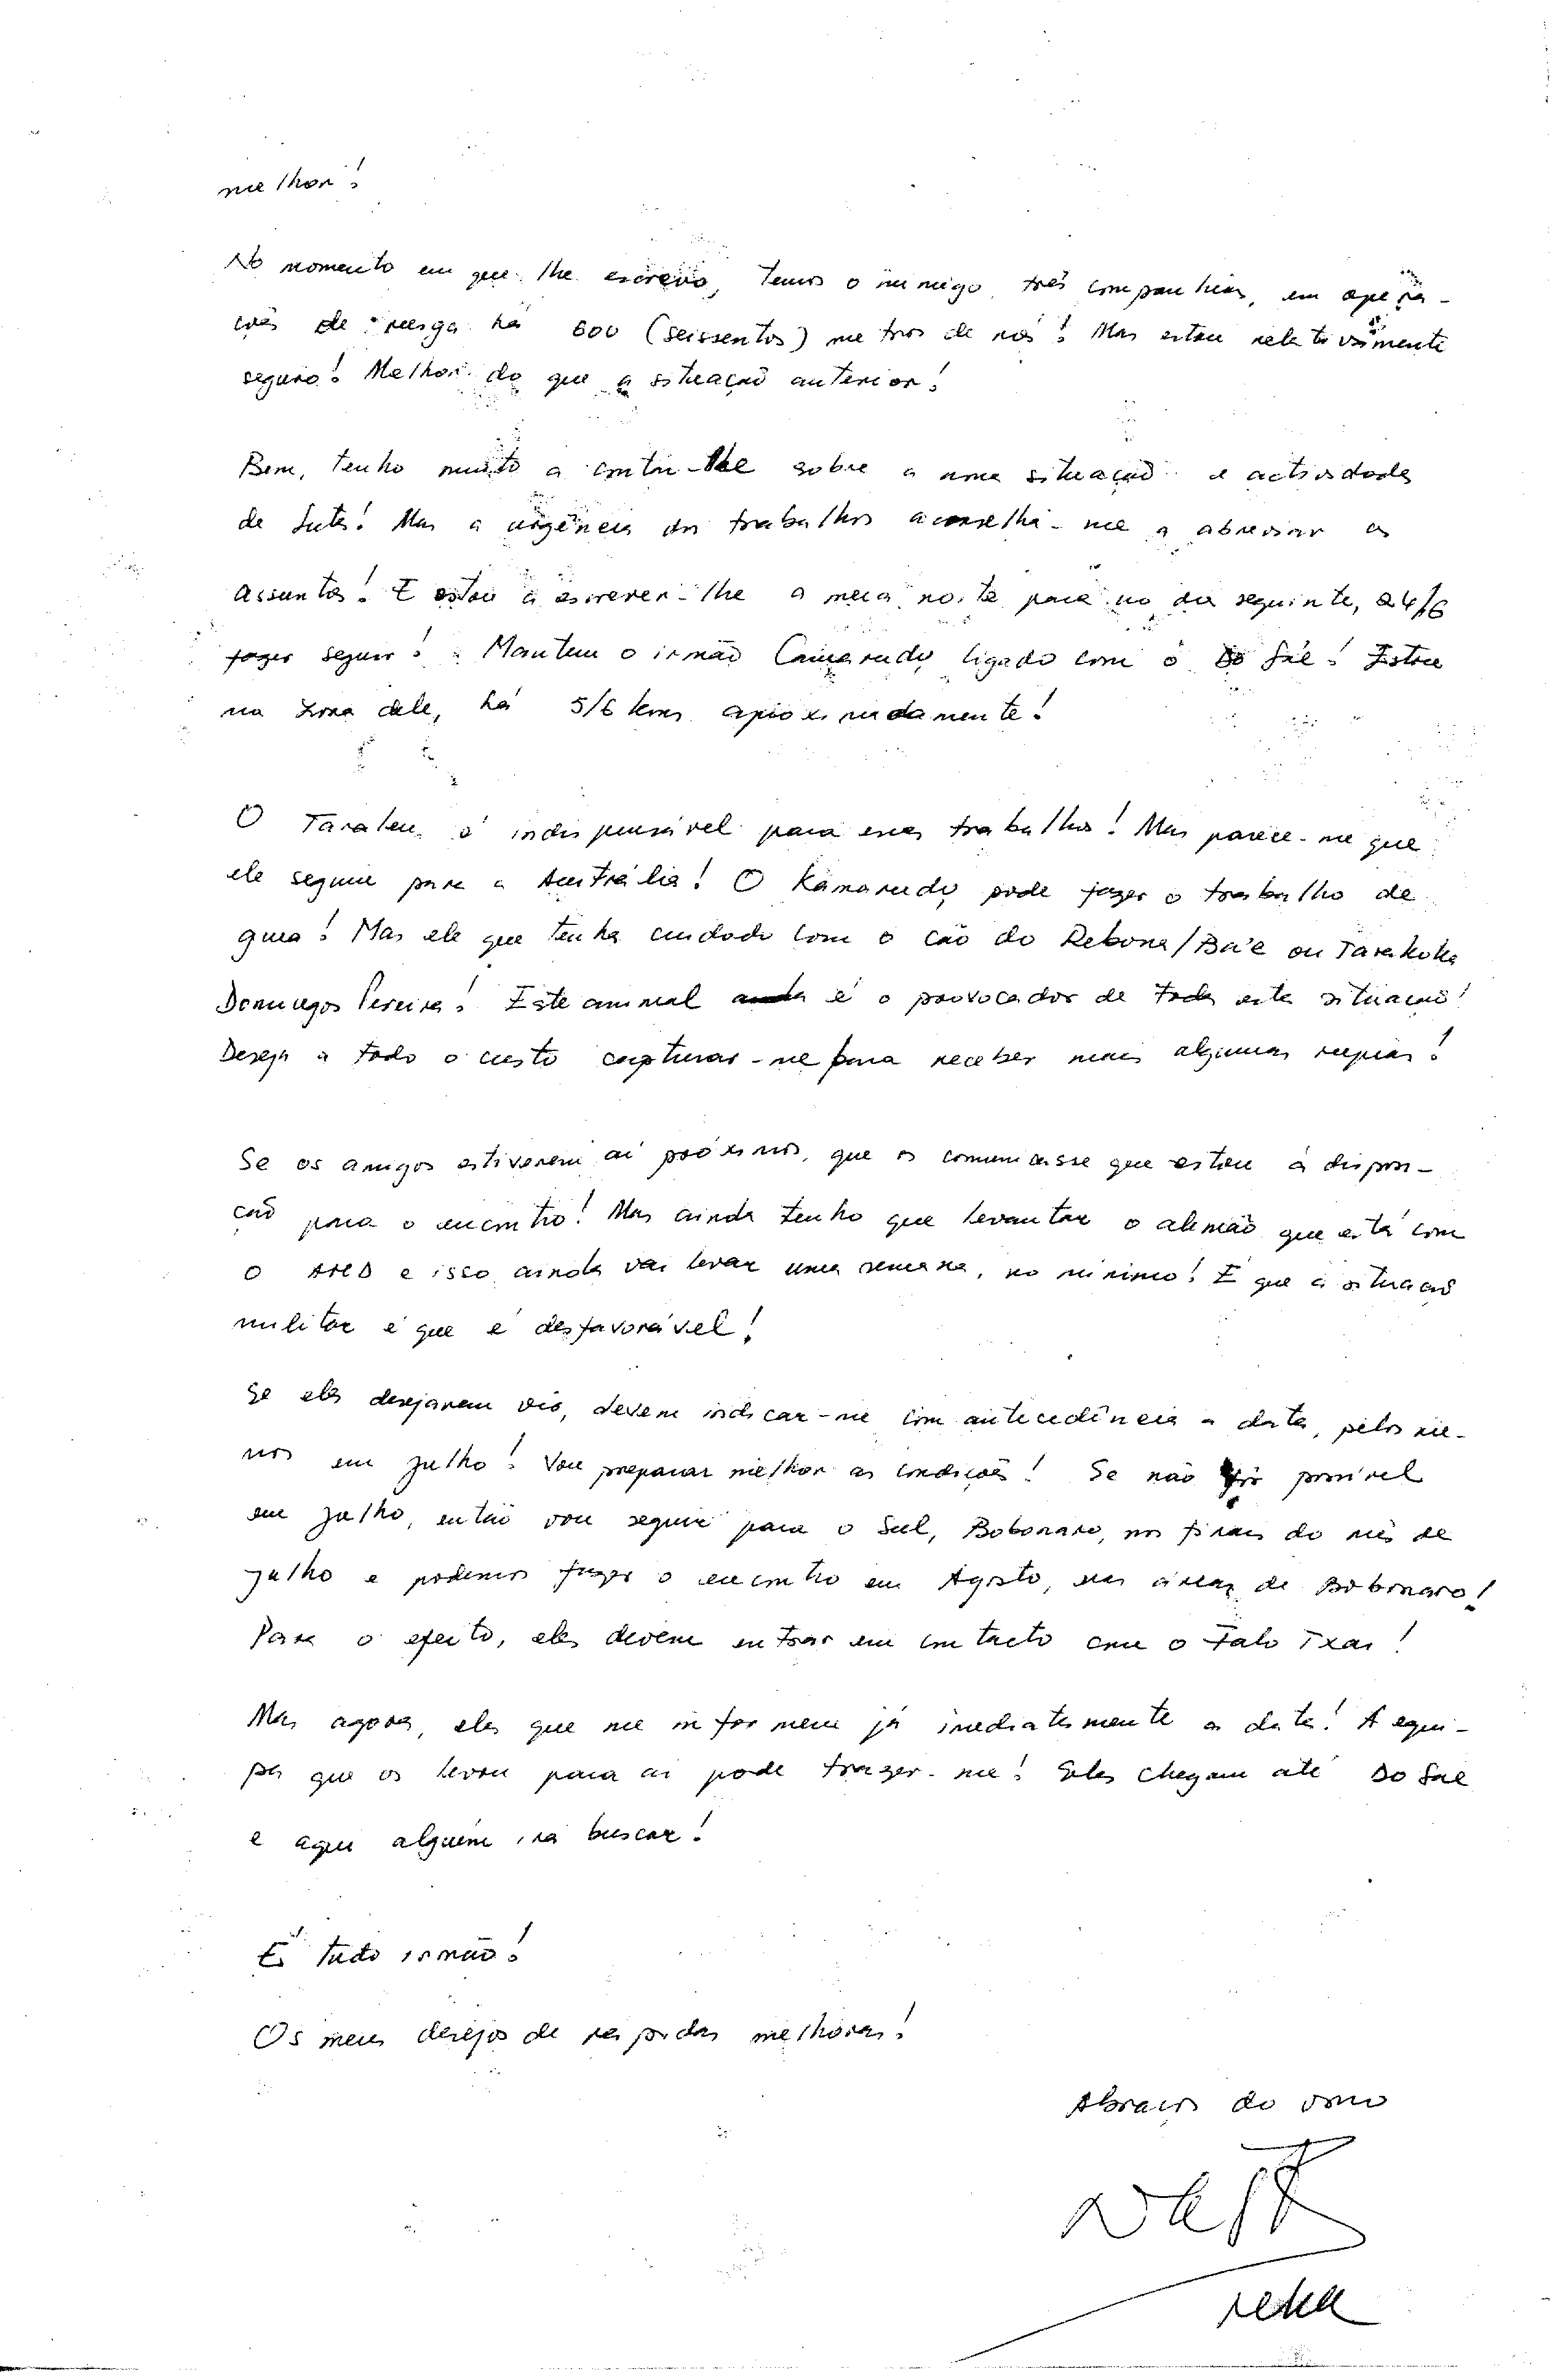 melhor!
No momento em que lhe escrevo, temos o inimigo, três companhias, em opera-
ções de rusga há 600 (seissentos) metros de nós! Mas estou relativamente
seguro! Melhor do que a situação anterior!
Bem, tenho muito a contar-lhe sobre a nova situação e actividades
de luta! Mas a urgência dos trabalhos aconselha-me a abreviar os
assuntos! E estou a escrever-lhe a meia noite para no dia seguinte, 24/6
fazer seguir! Mantem o irmão Camarudy ligado com o So Sae! Estou
na zona dele, há 5/6 kms aproximadamente!
O Taraleu é indispensável para esses trabalhos! Mas parece-me que
ele seguiu para a Austrália! O Kamarudy pode fazer o trabalho de
guia! Mas ele que tenha cuidado com o cão do Rebona/Ba'e ou Tarakoka
Domingos Pereira! Este animal é o provocador de toda esta situação!
Deseja a todo o custo capturar-me para receber mais algumas rupias!
Se os amigos estiverem aí próximos, que os comunicasse que estou à dispos-
ção para o encontro! Mas ainda tenho que levantar o alemão que está com
o e isso ainda vai levar uma semana, no mínimo! E que a situação
militar é que é desfavorável!
Se eles desejarem vir, devem indicar-me com antecedência a data, pelos me-
nos em Julho! Vou preparar melhor as condições! Se não for possível
em Julho, então vou seguir para o Sul, Bobonaro, nos finais do mês de
Julho e podemos fazer o encontro em Agosto, nas áreas de Bobonaro!
Para o efeito, eles devem entrar em contacto com o Falo Txai!
Mas agora, eles que me informem já imediatamente a data! A equi-
pa que os levou para aí pode trazer-me! Eles chegam até So Sae
e aqui alguém irá buscar!
É tudo irmão!
Os meus desejos de rápidas melhoras!
Abraços do vosso